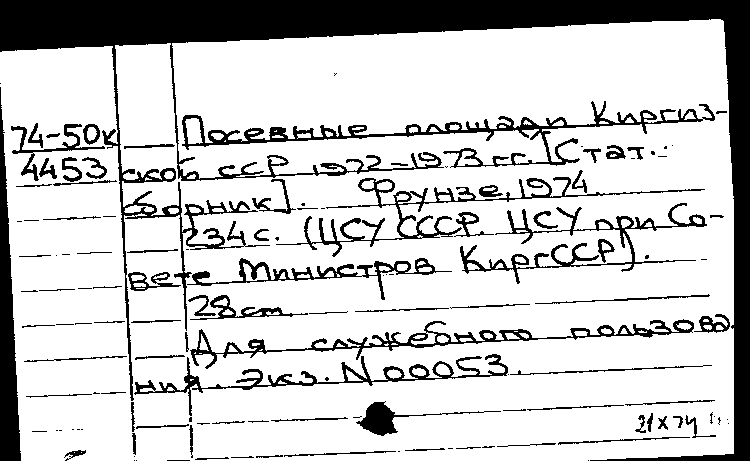 74-50к Посевные площади Киргиз-
4453 ской ССР 1972-1973 гг. [Стат.
сборник]. Фрунзе, 1974.
234 с. (ЦСУ СССР. ЦСУ при Со-
вете Министров КиргССР).
28 cm.
Для служебного пользова-
ния. Экз. N 00053.
21 X 74